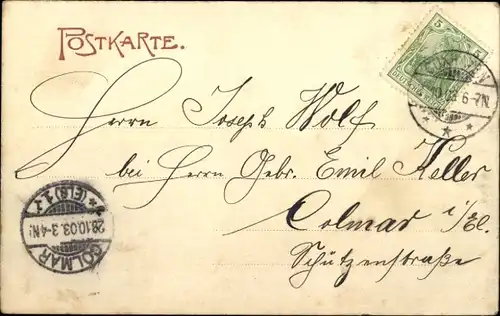 POSTKARTE.
5 5
6-7N.
Herrn Joseph Wolf
bei Herrn Gebr. Emil Keller
Colmar i/El.
Schützenstraße
* (ELS) 1 *
28.10.03. 3-4N.
COLMAR